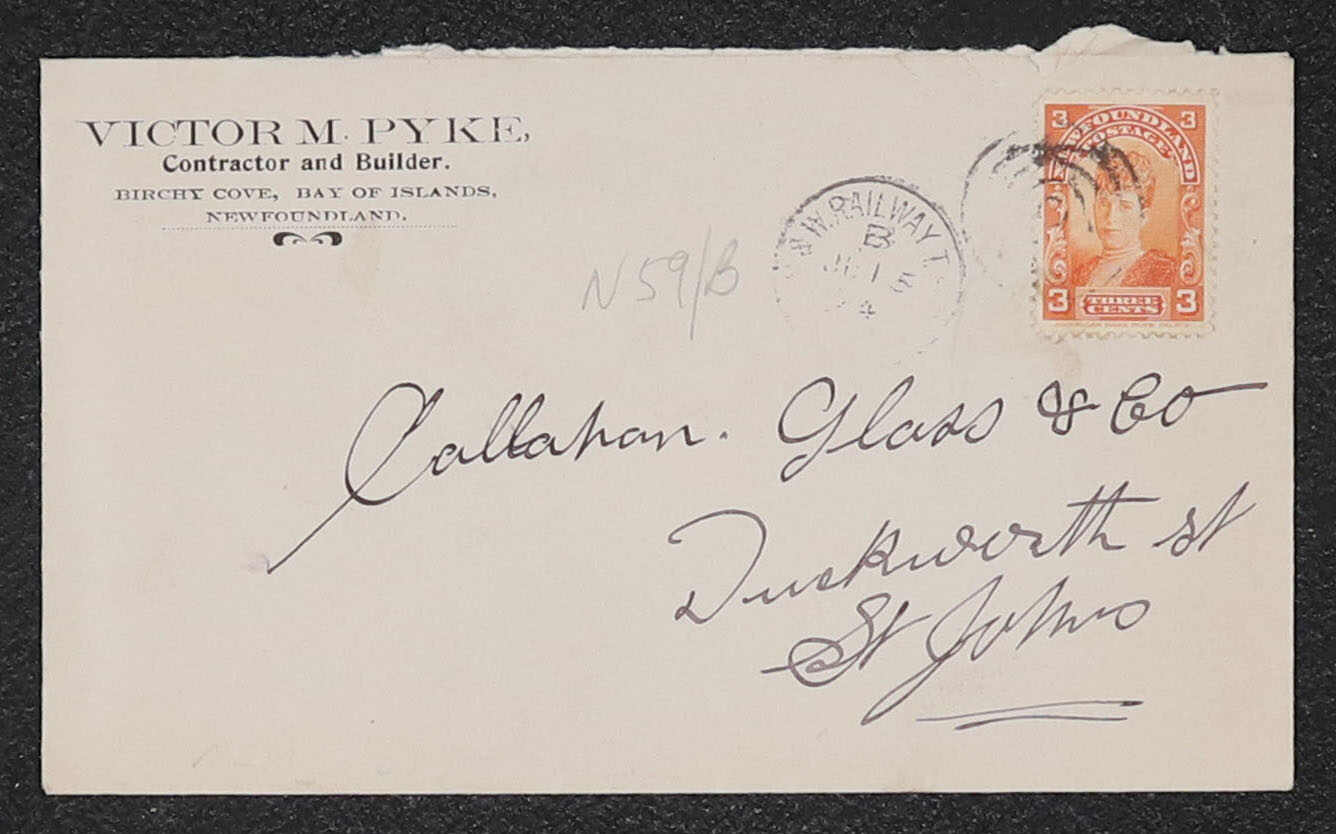 VICTOR M. PYKE,
Contractor and Builder.
BIRCHY COVE, BAY OF ISLANDS,
NEWFOUNDLAND.
N59/B
W. RAILWAY T.
B
4
3 3
NEWFOUNDLAND
POSTAGE
3 THREE CENTS 3
Callahan. Glass & Co
Duckworth st
St Johns